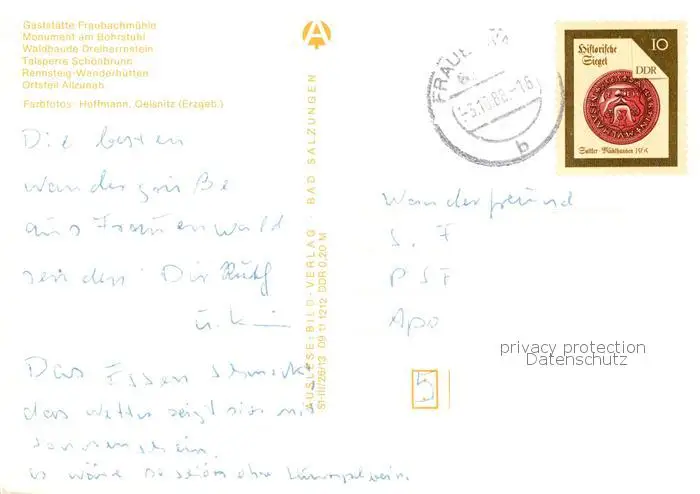 Gaststätte Fraubachmühle
Monument am Bohrstuhl
Waldbaude Dreiherrnstein
Talsperre Schönbrunn
Rennsteig-Wanderhütten
Ortsteil Allzunah
Farbfotos: Hoffmann, Oelsnitz (Erzgeb.)
Die besten
Wandergrüße
aus Frauenwald
senden Dir Ruth
u. K
Das Essen schmeckt
das Wetter zeigt sich mit
Sonnenschein.
es wäre so schön ohne
AUSLESE-BILD-VERLAG · BAD SALZUNGEN
S1-III/26/13 09 11 1212 DDR 0,20 M
A
FRAUE
b
Historische
Siegel
10
DDR
Sattler · Mühlhausen 1565
Wanderfreund
S. F
PSF
Apo
5
privacy protection
Datenschutz